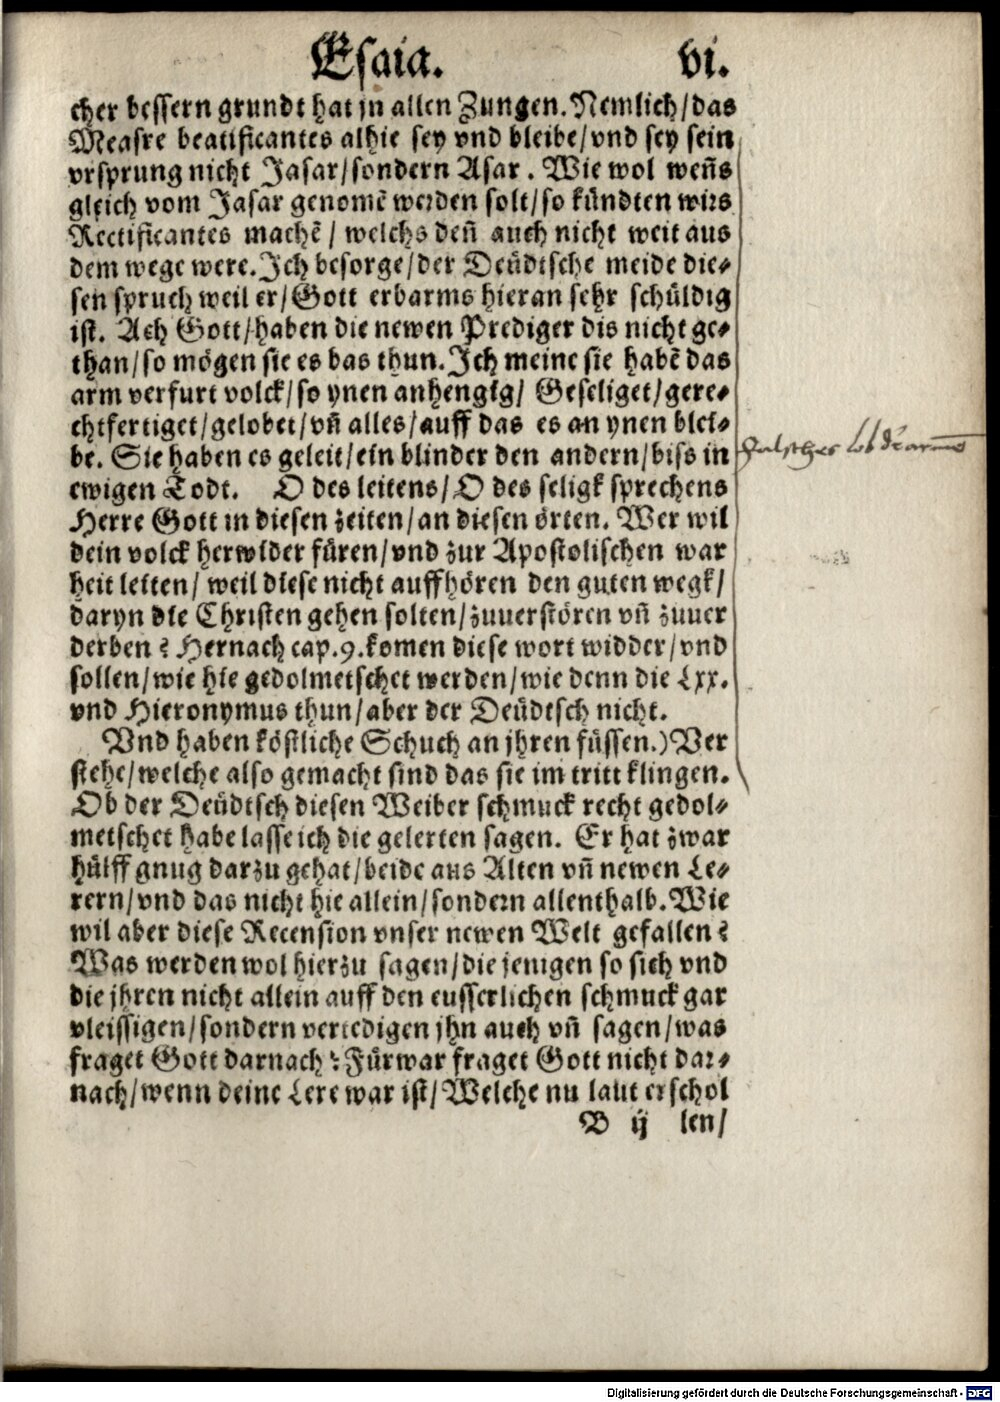 Esaia. vi.
cher bessern grundt hat jn allen Zungen. Nemlich/das
Measre beatificantes alhie sey vnd bleibe/vnd sey sein
vrsprung nicht Jasar/sondern Asar. Wie wol weñs
gleich vom Jasar genomē werden solt/so kündten wirs
Rectificantes machē/ welchs deñ auch nicht weit aus
dem wege were. Ich besorge/der Deüdtsche meide die⸗
sen spruch weil er/Gott erbarms hieran sehr schüldig
ist. Ach Gott/haben die newen Prediger dis nicht ge⸗
than/so mögen sie es bas thun. Ich meine sie habē das
arm verfurt volck/so ynen anhengig/ Geseliget/gere⸗
chtfertiget/gelobet/vñ alles/auff das es an ynen blei⸗
be. Sie haben es geleit/ein blinder den andern/biss in
ewigen Todt. O des leitens/O des seligk sprechens
Herre Gott in diesen zeiten/an diesen örten. Wer wil
dein volck herwider füren/vnd zur Apostolischen war
heit leiten/ weil diese nicht auffhören den guten wegk/
daryn die Christen gehen solten/zuuerstören vñ zuuer
derben? Hernach cap.9.komen diese wort widder/vnd
sollen/wie hie gedolmetschet werden/wie denn die Lxx.
vnd Hieronymus thun/aber der Deüdtsch nicht.
Vnd haben köstliche Schuch an jhren füssen.) Ver
stehe/welche also gemacht sind das sie im tritt klingen.
Ob der Deüdtsch diesen Weiber schmuck recht gedol⸗
metschet habe lasse ich die gelerten sagen. Er hat zwar
hülff gnug darzu gehat/beide aus Alten vñ newen Le⸗
rern/vnd das nicht hie allein/sondern allenthalb. Wie
wil aber diese Recension vnser newen Welt gefallen?
Was werden wol hierzu sagen/die jenigen so sich vnd
die jhren nicht allein auff den eusserlichen schmuck gar
vleissigen/sondern verteidigen jhn auch vñ sagen/was
fraget Gott darnach? Fürwar fraget Gott nicht dar⸗
nach/wenn deine Lere war ist/Welche nu laut erschol
B ij len/
falsches lob
Digitalisierung gefördert durch die Deutsche Forschungsgemeinschaft - DFG